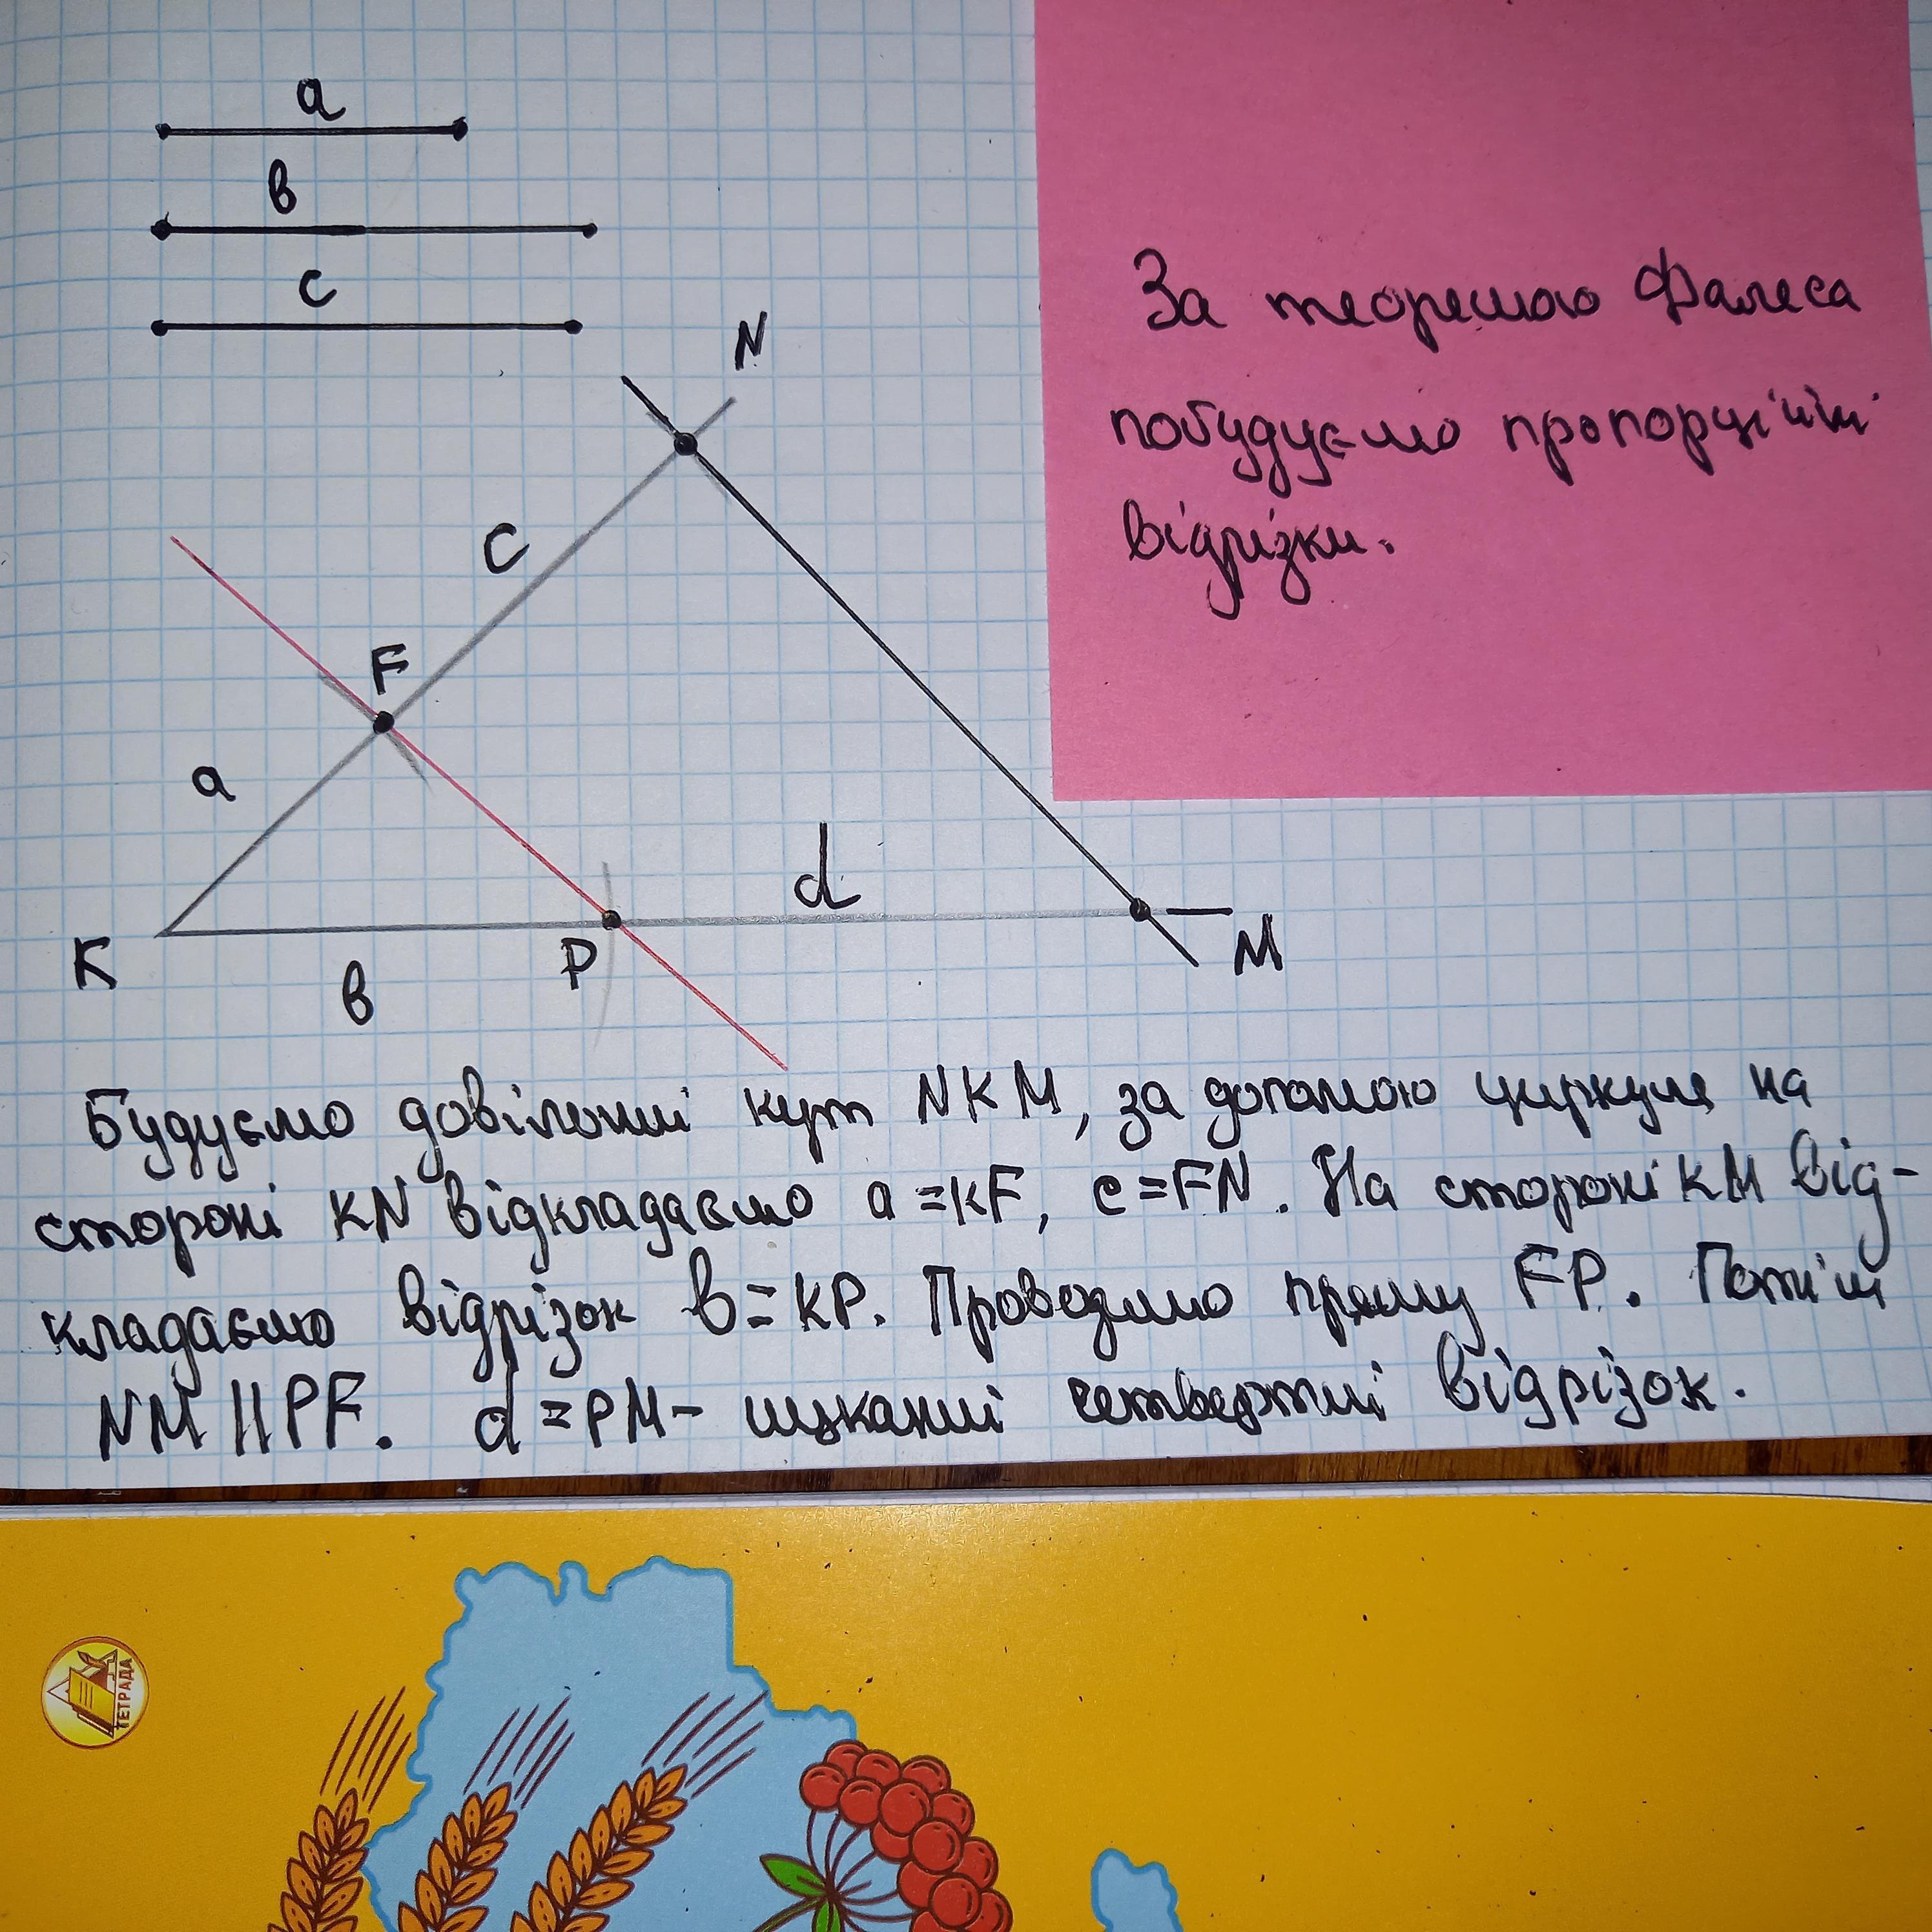 a
в
c
N
За теоремою Фалеса
побудуємо пропорційні
відрізки.
C
F
a
d
K
P
M
в
Будуємо довільний кут NKM, за допомою циркуля на
стороні KN відкладаємо a=KF, c=FN. На стороні KM від-
кладаємо відрізок в=KP. Проводимо пряму FP. Потім
NM||PF. d=PM- шуканий четвертий відрізок.
ТЕТРАДА